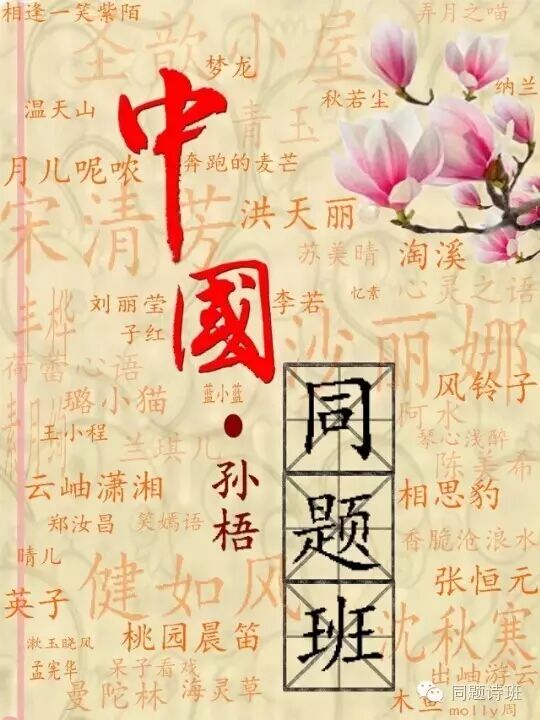 相逢一笑紫陌
弄月之喵
圣歆小屋
梦龙
秋若尘
纳兰
温天山
青玉
月儿呢哝
奔跑的麦芒
宋清芳
洪天丽
苏美晴
淘溪
心灵之语
中國
·
孙梧
丰桦
刘丽莹
子红
李若
忆素
沙丽娜
荷蕾心语
蓝小蓝
璐小猫
风铃子
阿水
王小程
兰琪儿
琴心浅醉
陈美希
云岫潇湘
相思豹
郑汝昌
笑嫣语
香脆沧浪水
晴儿
健如风
张恒元
英子
漱玉晓风
桃园晨笛
沈秋寒
孟宪华
呆子看戏
出岫游云
曼陀林
海灵草
木鱼
molly周
同题班
同题诗班